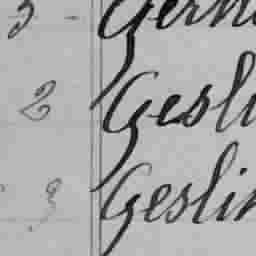 3 - Gern
2 Gesli
3 Geslin